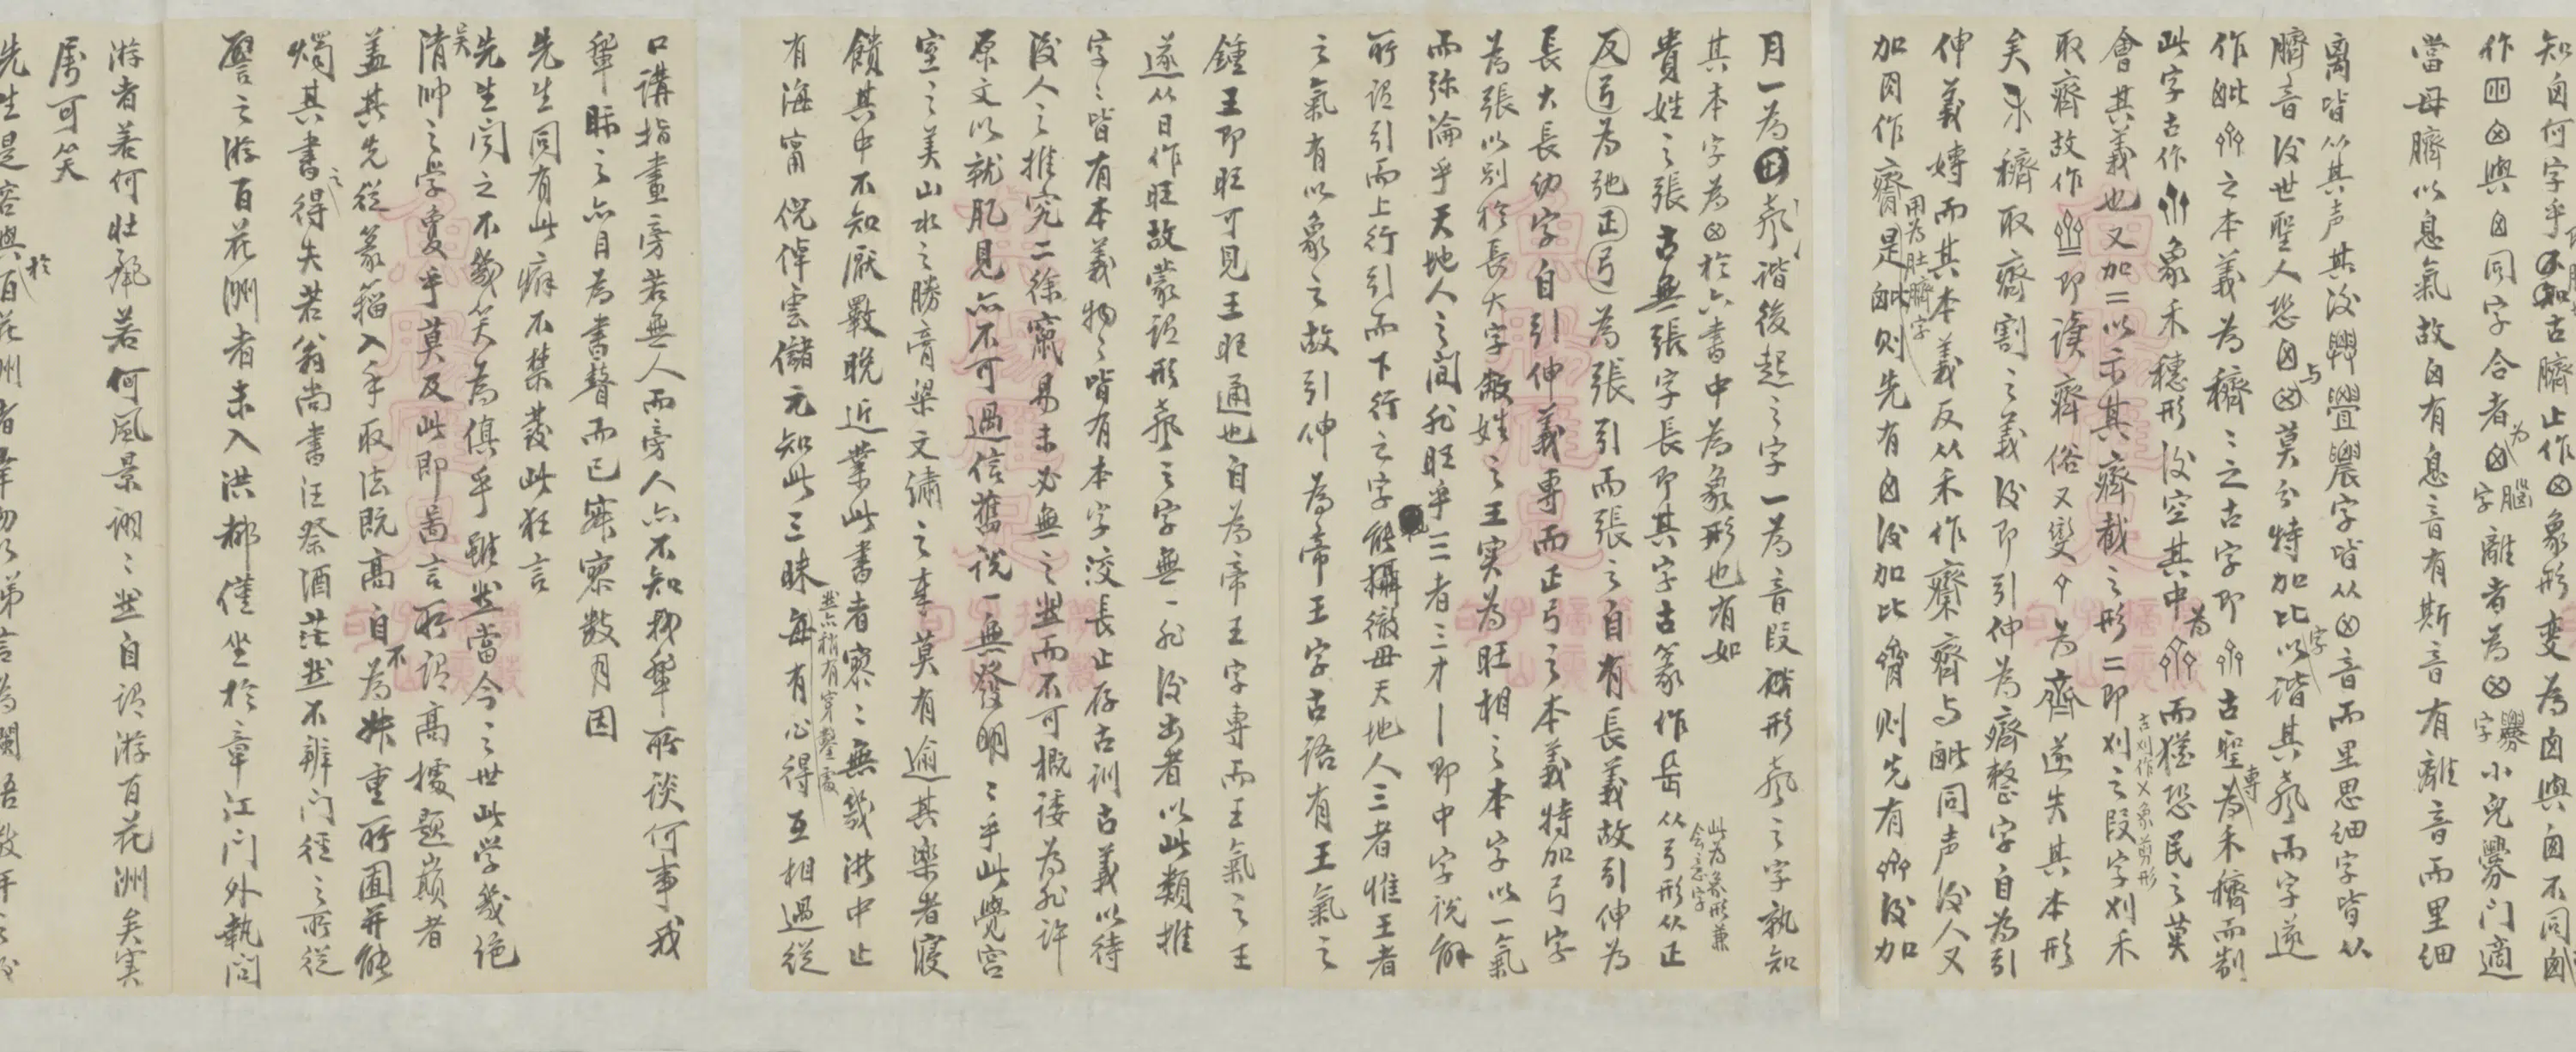 知囟何字乎古臍止作⊗象形变為囟與囟不同囟
作囟⊗與囟同字合者為囟腦字離者為⊗爨字小兒爨门適
當母臍以息氣故囟有息音有斯音有離音而里细
离皆从其声其後興釁農字皆从⊗音而里思细字皆从
臍音後世聖人恐囟与⊗莫分特加比字以谐其聲而字遂
作毗之本義為穧穧之古字即古聖專為禾穧而制
此字古作象禾穗形後空其中為而猶恐民之莫
會其義也又加二以示其齊截之形二即刈之叚字刈禾古刈作乂象剪形
取齊故作即读齊俗又變为齊遂失其本形
矣禾穧取齊割之義後即引伸為齊整字自為引
伸義專而其本義反从禾作穧齊与毗同声後人又
加肉作臍用為肚臍字是毗则先有囟後加比臍则先有後加
月一為聲谐後起之字一為音叚形聲之字孰知
其本字為⊗於六書中為象形也有如
貴姓之張古無張字長即其字古篆作从弓形从正此為象形兼會意字
反弓為弛正弓為張引而張之自有長義故引伸為
長大長幼字自引伸義專而正弓之本義特加弓字
為張以别於長大字敝姓之王实為旺相之本字以一氣
而弥淪乎天地人之间非旺乎三者三才丨即中字说解
所谓引而上行引而下行之字能攝徹毋天地人三者惟王者
之氣有以象之故引伸為帝王字古语有王氣之
鍾王即旺可見王旺通也自為帝王字專而王氣之王
遂从日作旺故蒙谓形聲之字無一非後出者以此類推
字字皆有本義物物皆有本字洨長止存古训古義以待
後人之推究二徐竄易未必無之然而不可概诿為非许
原文以就肊見亦不可過信舊说一無發明明乎此覺宫
室之美山水之勝膏粱文繡之奉莫有逾其樂者寝
饋其中不知厭斁晚近業此書者寥寥無幾洪中止
有海甯倪倬雲儲元知此三昧然亦稍有穿鑿處每有心得互相過從
口講指畫旁若無人而旁人亦不知我輩所谈何事我
輩眎之亦目為書聱而已寐寥数月因
先生同有此癖不禁發此狂言
先生闻之不幾笑為俱乎雖然當今之世此学幾绝
清吴帅之学夐乎莫及此即啚言所谓高樓题巔者
盖其先從篆籀入手取法既高自不為姝重所囿并能
烛其書之得失若翁尚書汪祭酒茫然不辨门径之所從
譬之游百花洲者未入洪都僅坐於章江门外執问
游者若何壯麗若何風景诩诩然自谓游百花洲矣实
屬可笑
先生是容與於百花洲者幸勿以弟言為闌吾数年之